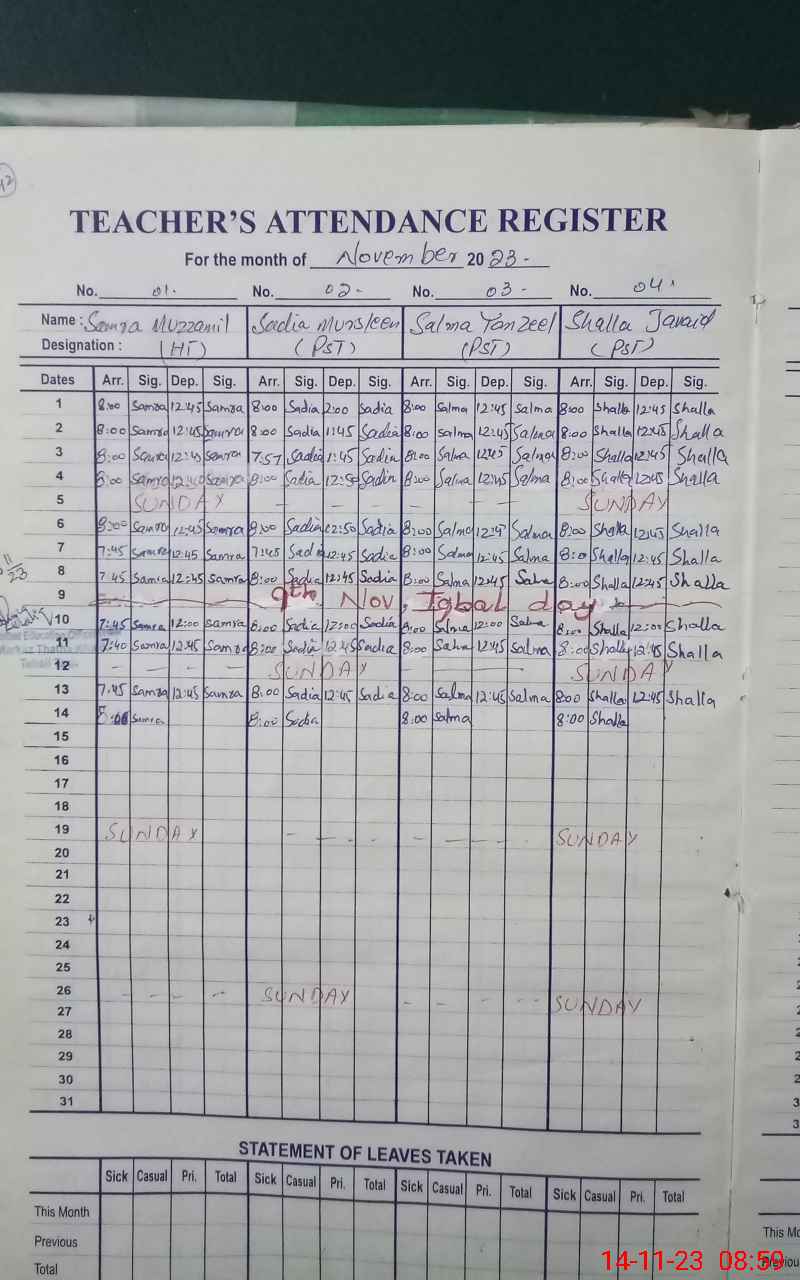 TEACHER'S ATTENDANCE REGISTER
For the month of November 2023-
No. 01. No. 02- No. 03- No. 04.
Name : Samra Muzzamil Sadia Mursleen Salma Tanzeel Shalla Javaid
Designation : (HT) (PST) (PST) (PST)
Dates Arr. Sig. Dep. Sig. Arr. Sig. Dep. Sig. Arr. Sig. Dep. Sig. Arr. Sig. Dep. Sig.
1 8:00 Samra 12:45 Samra 8:00 Sadia 2:00 Sadia 8:00 Salma 12:45 Salma 8:00 Shalla 12:45 Shalla
2 8:00 Samra 12:45 Samra 8:00 Sadia 1:45 Sadia 8:00 Salma 12:45 Salma 8:00 Shalla 12:45 Shalla
3 8:00 Samra Samra 7:57 Sadia 1:45 Sadia 8:00 Salma 12:45 Salma 8:00 Shalla 12:45 Shalla
4 8:00 Samra Samra 8:00 Sadia 12:50 Sadia 8:00 Salma 12:45 Salma 8:00 Shalla 12:45 Shalla
5 SUNDAY - - - - - - SUNDAY
6 8:00 Samra 12:45 Samra 8:00 Sadia 12:50 Sadia 8:00 Salma Salma 8:00 Shalla 12:45 Shalla
7 7:45 Samra 12:45 Samra 7:45 Sadia 12:45 Sadia 8:00 Salma 12:45 Salma 8:00 Shalla 12:45 Shalla
8 7:45 Samra 12:45 Samra 8:00 Sadia 12:45 Sadia 8:00 Salma 12:45 Salma 8:00 Shalla 12:45 Shalla
9 9th Nov, Iqbal day
10 7:45 Samra 12:00 Samra 8:00 Sadia 12:00 Sadia 8:00 Salma 12:00 Salma 8:00 Shalla 12:00 Shalla
11 7:40 Samra 12:45 Samra 8:00 Sadia 12:45 Sadia 8:00 Salma 12:45 Salma 8:00 Shalla 12:45 Shalla
12 - - - - SUNDAY - - - - SUNDAY
13 7:45 Samra 12:45 Samra 8:00 Sadia 12:45 Sadia 8:00 Salma 12:45 Salma 8:00 Shalla 12:45 Shalla
14 8:00 Samra 8:00 Sadia 8:00 Salma 8:00 Shalla
15
16
17
18
19 SUNDAY - - - - - - - SUNDAY
20
21
22
23
24
25
26 - - - - SUNDAY - - - - SUNDAY
27
28
29
30
31
STATEMENT OF LEAVES TAKEN
Sick Casual Pri. Total Sick Casual Pri. Total Sick Casual Pri. Total Sick Casual Pri. Total
This Month
Previous
Total
14-11-23 08:59